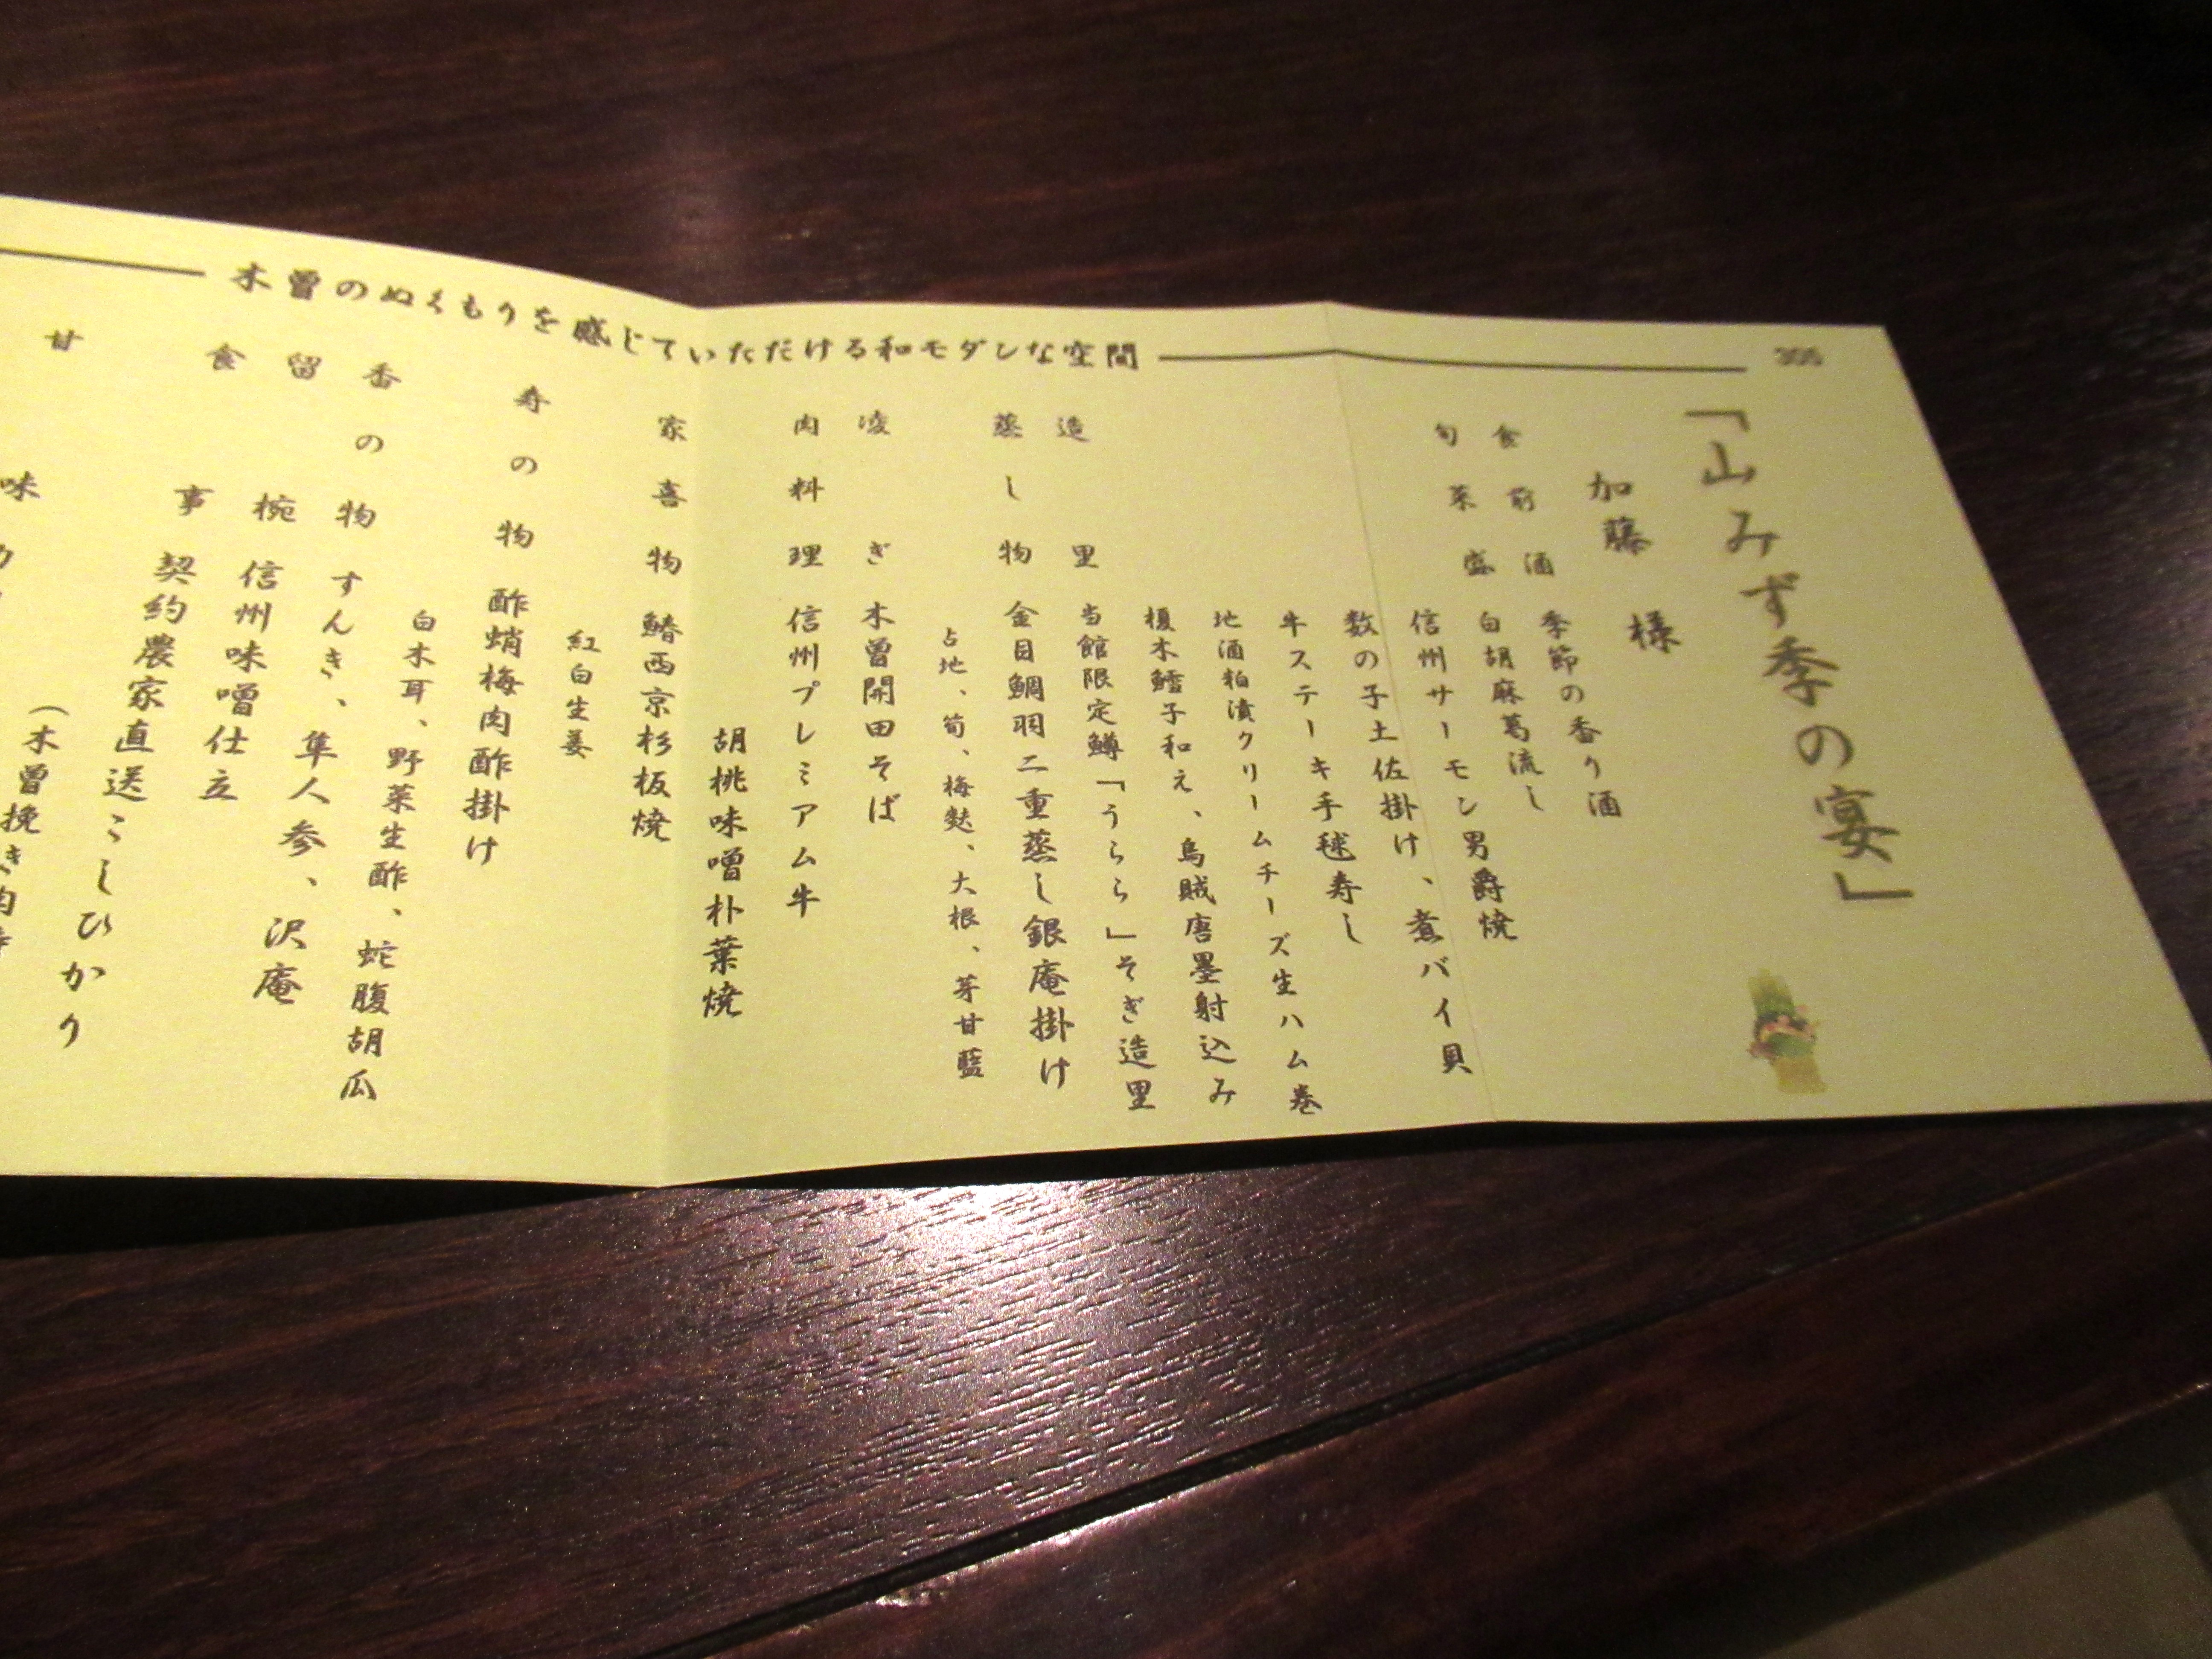 木曽のぬくもりを感じていただける和モダンな空間
305
「山みず季の宴」
加藤 様
食前酒 季節の香り酒
旬菜盛 白胡麻葛流し
信州サーモン男爵焼
数の子土佐掛け、煮バイ貝
牛ステーキ手毬寿し
地酒粕漬クリームチーズ生ハム巻
榎木鱈子和え、烏賊唐墨射込み
造里 当館限定鱒「うらら」そぎ造里
蒸し物 金目鯛羽二重蒸し銀庵掛け
占地、筍、梅麩、大根、芽甘藍
凌ぎ 木曽開田そば
肉料理 信州プレミアム牛
胡桃味噌朴葉焼
家喜物 鰆西京杉板焼
紅白生姜
寿の物 酢蛸梅肉酢掛け
白木耳、野菜生酢、蛇腹胡瓜
香の物 すんき、隼人参、沢庵
留椀 信州味噌仕立
食事 契約農家直送こしひかり
(木曽挽き肉
甘味